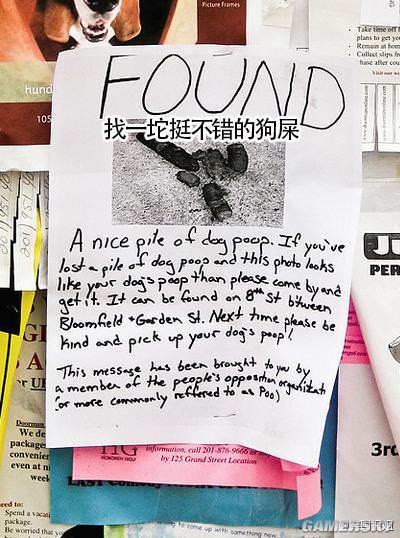 Picture Frames
hund
105
FOUND
找一坨挺不错的狗屎
A nice pile of dog poop. If you've
lost a pile of dog poop and this photo looks
like your dog's poop than please come by and
get it. It can be found on 8th St btween
Bloomfield + Garden St. Next time please be
kind and pick up your dog's poop!
This message has been brought to you by
a member of the people's opposition organizati
(or more commonly reffered to as Poo)
Take time off f
plans to get you
Remain at home
Collect slips fro
chase after cou
PER
3rd
Doorman
We de
packages
convenie
even at ni
week
information, call 201-876-9666 or
by 125 Grand Street Location
HG
HOBOKEN GOLF
need to:
Spend a vacat
package.
Be worried that
ying to come up with something new.
GAMERSKY